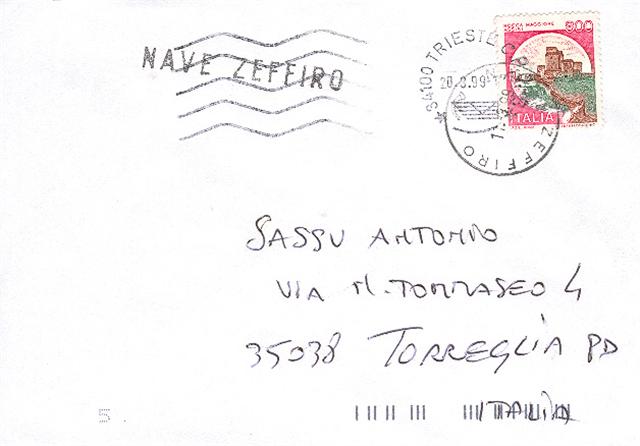 NAVE ZEFFIRO
34100 TRIESTE C.P.
20.3.99
ZEFFIRO
ROCCA MAGGIORE
800
ITALIA
SASSU ANTONIO
VIA N. TOMMASEO 4
35038 TORREGLIA PD
ITALIA
5